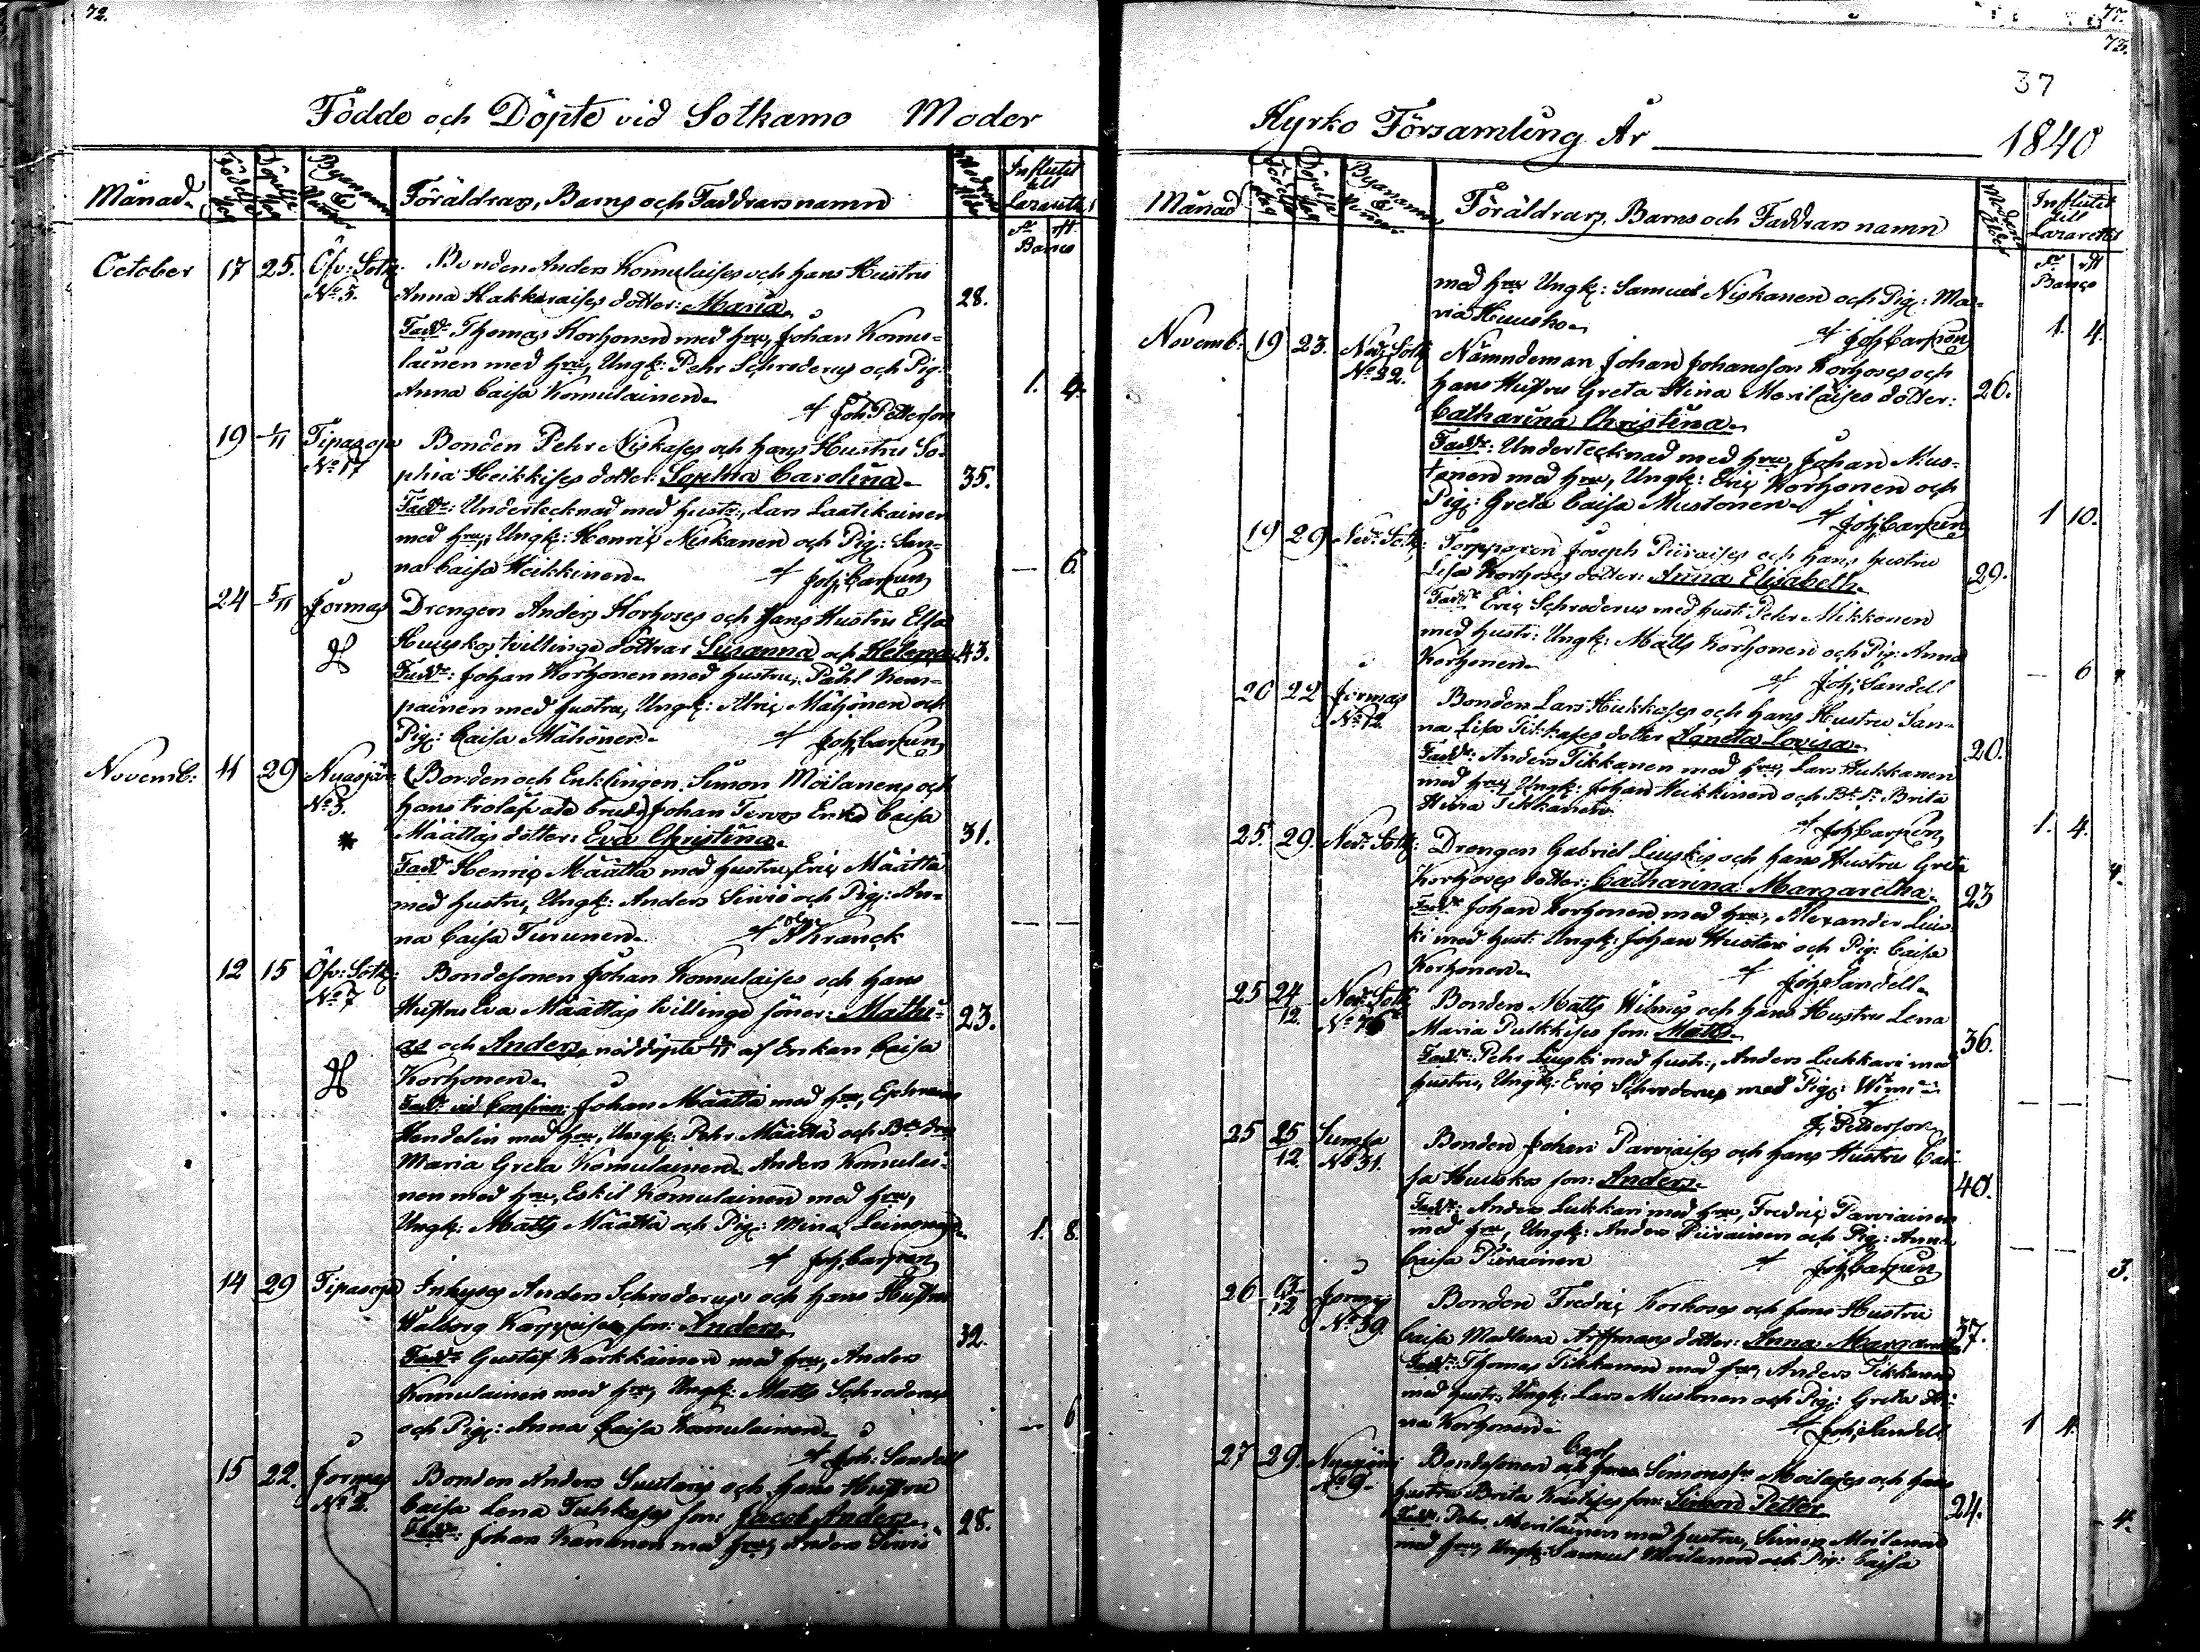 72.
Födde och Döpte vid Sotkamo Moder
Månad. Födelse dag Döpelse dag Byarnas & Numer Föräldrars, Barns och Faddrars namn Modrens Ålder Influtit till Lazarettet
Sr. rft
Banco
October 17 25. Öfv: Sotk: Bonden Anders Komulaises och hans Hustru
No 5. Anna Hakkaraises dotter: Maria. 28.
Faddr: Thomas Korhonen med hru, Johan Komu-
lainen med hru, Ungk: Pehr Schroderus och Pig:
Anna Caisa Komulainen. 1. 4.
af Joh: Petterson
19 1/11 Tipasoja Bonden Pehr Niskases och hans Hustru So-
No 17 phia Heikkises dotter: Sophia Carolina. 35.
Faddr: Undertecknad med hustr:, Lars Laatikainen
med hru, Ungk: Henric Niskanen och Pig: San-
na Caisa Heikkinen. — 6.
af Joh: Carpen
24 5/11 Jormas Drengen Anders Korhoses och hans Hustru Elsa
Huuskos tvillinge döttrar Susanna och Helena 43.
Faddr: Johan Korhonen med hustru, Påhl Kem-
painen med hustru, Ungk: Alric Mähönen och
Pig: Caisa Mähönen. af Joh: Carpen
Novemb: 11 29 Nuasjär: (Bonden och Enklingen Simon Moilanens och
No 5. hans trolåfvade brud) Johan Terves Enka Caisa
* Määttäs dotter: Eva Christina. 31.
Faddr Henric Määttä med hustru, Eric Määttä
med hustru, Ungk: Anders Sirviö och Pig: An-
na Caisa Turunen. af Kranck
12 15 Öfv: Sotk: Bondesonen Johan Komulaises och hans
No 7 Hustru Eva Määttäs tvillinge söner: Mathi- 23.
as och Anders, nöddöpte af Enkan Caisa
Korhonen.
Faddr vid Confirm: Johan Määttä med hru, Ephraim
Hendelin med hru, Ungk: Pehr Määttä och Bde dr
Maria Greta Komulainen. Anders Komulai-
nen med hru, Eskil Komulainen med hru,
Ungk: Matts Määttä och Pig: Mina Leinonen. 1. 8.
af Joh: Carpen
14 29 Tipasoja Inhyses Anders Schroderus och hans Hustru
Walborg Karppises son: Anders. 32.
Faddr Gustaf Karkkäinen med hru, Anders
Komulainen med hru, Ungk: Matts Schroderus
och Pig: Anna Caisa Komulainen. — 6
af Joh: Sandell
15 22. Jormas Bonden Anders Sustars och hans Hustru
No 2. Caisa Lena Tuhkases son: Jacob Anders. 28.
Faddr: Johan Kananen med hru, Anders Sirviö
77.
73.
37
Kyrko Församling År 1840
Månad Födelse dag Döpelse dag Byarnas & Numer Föräldrars, Barns och Faddrars namn Modrens Ålder Influtit till Lazarettet
Sr rft
Banco
med hru Ungk: Samuel Niskanen och Pig: Ma-
ria Huusko. af Joh: Carpen 1. 4.
Novemb: 19 23. Ned: Sotk: Nämndeman Johan Johansson Korhoses och
No 22. hans Hustru Greta Stina Merilaises dotter: 26.
Catharina Christina.
Faddr: Undertecknad med hru, Johan Mus-
tonen med hru, Ungk: Eric Korhonen och
Pig: Greta Caisa Mustonen. af Joh: Carpen 1 10.
19 29 Ned: Sotk: Torpparen Joseph Piiraises och hans hustru
Lisa Korhoses dotter: Anna Elisabeth. 29.
Faddr Eric Schroderus med hustr: Pehr Mikkonen
med hustr: Ungk: Matts Korhonen och Pig: Anna
Korhonen. af Joh: Sandell — 6
20 22 Jormas Bonden Lars Hukkases och hans Hustru San-
No 12. na Lisa Tikkases dotter Agneta Lovisa. 20.
Faddr: Anders Tikkanen med hru, Lars Hukkanen
med hru, Ungk: Johan Heikkinen och Bd. dr Brita
Stina Tikkanen. af Joh: Carpen 1. 4.
25. 29. Ned: Sotk: Drengen Gabriel Liuskis och hans Hustru Greta
Korhoses dotter: Catharina Margaretha. 23 4.
Faddr Johan Korhonen med hru, Alexander Lius-
ki med hust: Ungk: Johan Hustari och Pig: Caisa
Korhonen. af Joh: Sandell.
25 24/12. Ned: Sotk: Bonden Matts Wilmis och hans Hustru Lena
Maria Pulkkises son: Matts. 36.
Faddr: Pehr Liuski med hustr:, Anders Lukkari med
hustru, Ungk: Eric Schroderus med Pig: — —
af J: Petterson
25 25/12. Sumsa Bonden Johan Parviaises och hans Hustru Cai-
No 31. sa Huuskos son: Anders. 40.
Faddr: Anders Lukkari med hru, Fredric Parviainen
med hru, Ungk: Anders Piirainen och Pig: Anna
Caisa Piirainen af Joh: Carpen — — 3.
26 /12 Jormas Bonden Fredric Korhoses och hans Hustru
No 39. Caisa Madlena Arffmans dotter: Anna Margaretha 37.
Faddr: Thomas Tikkanen med hru, Anders Tikkanen
med hustr, Ungk: Lars Mustonen och Pig: Greta Sti-
na Korhonen. af Joh: Sandell 1 4.
27 29. Nuasjärvi Bondesonen Carl Simonsson Moilases och hans
No 9. hustru Brita Kärkises son: Simon Petter. 24.
Faddr: Pehr Merilainen med hustru, Simon Moilanen 4.
med hru, Ungk: Samuel Moilanen och Pig: Caisa